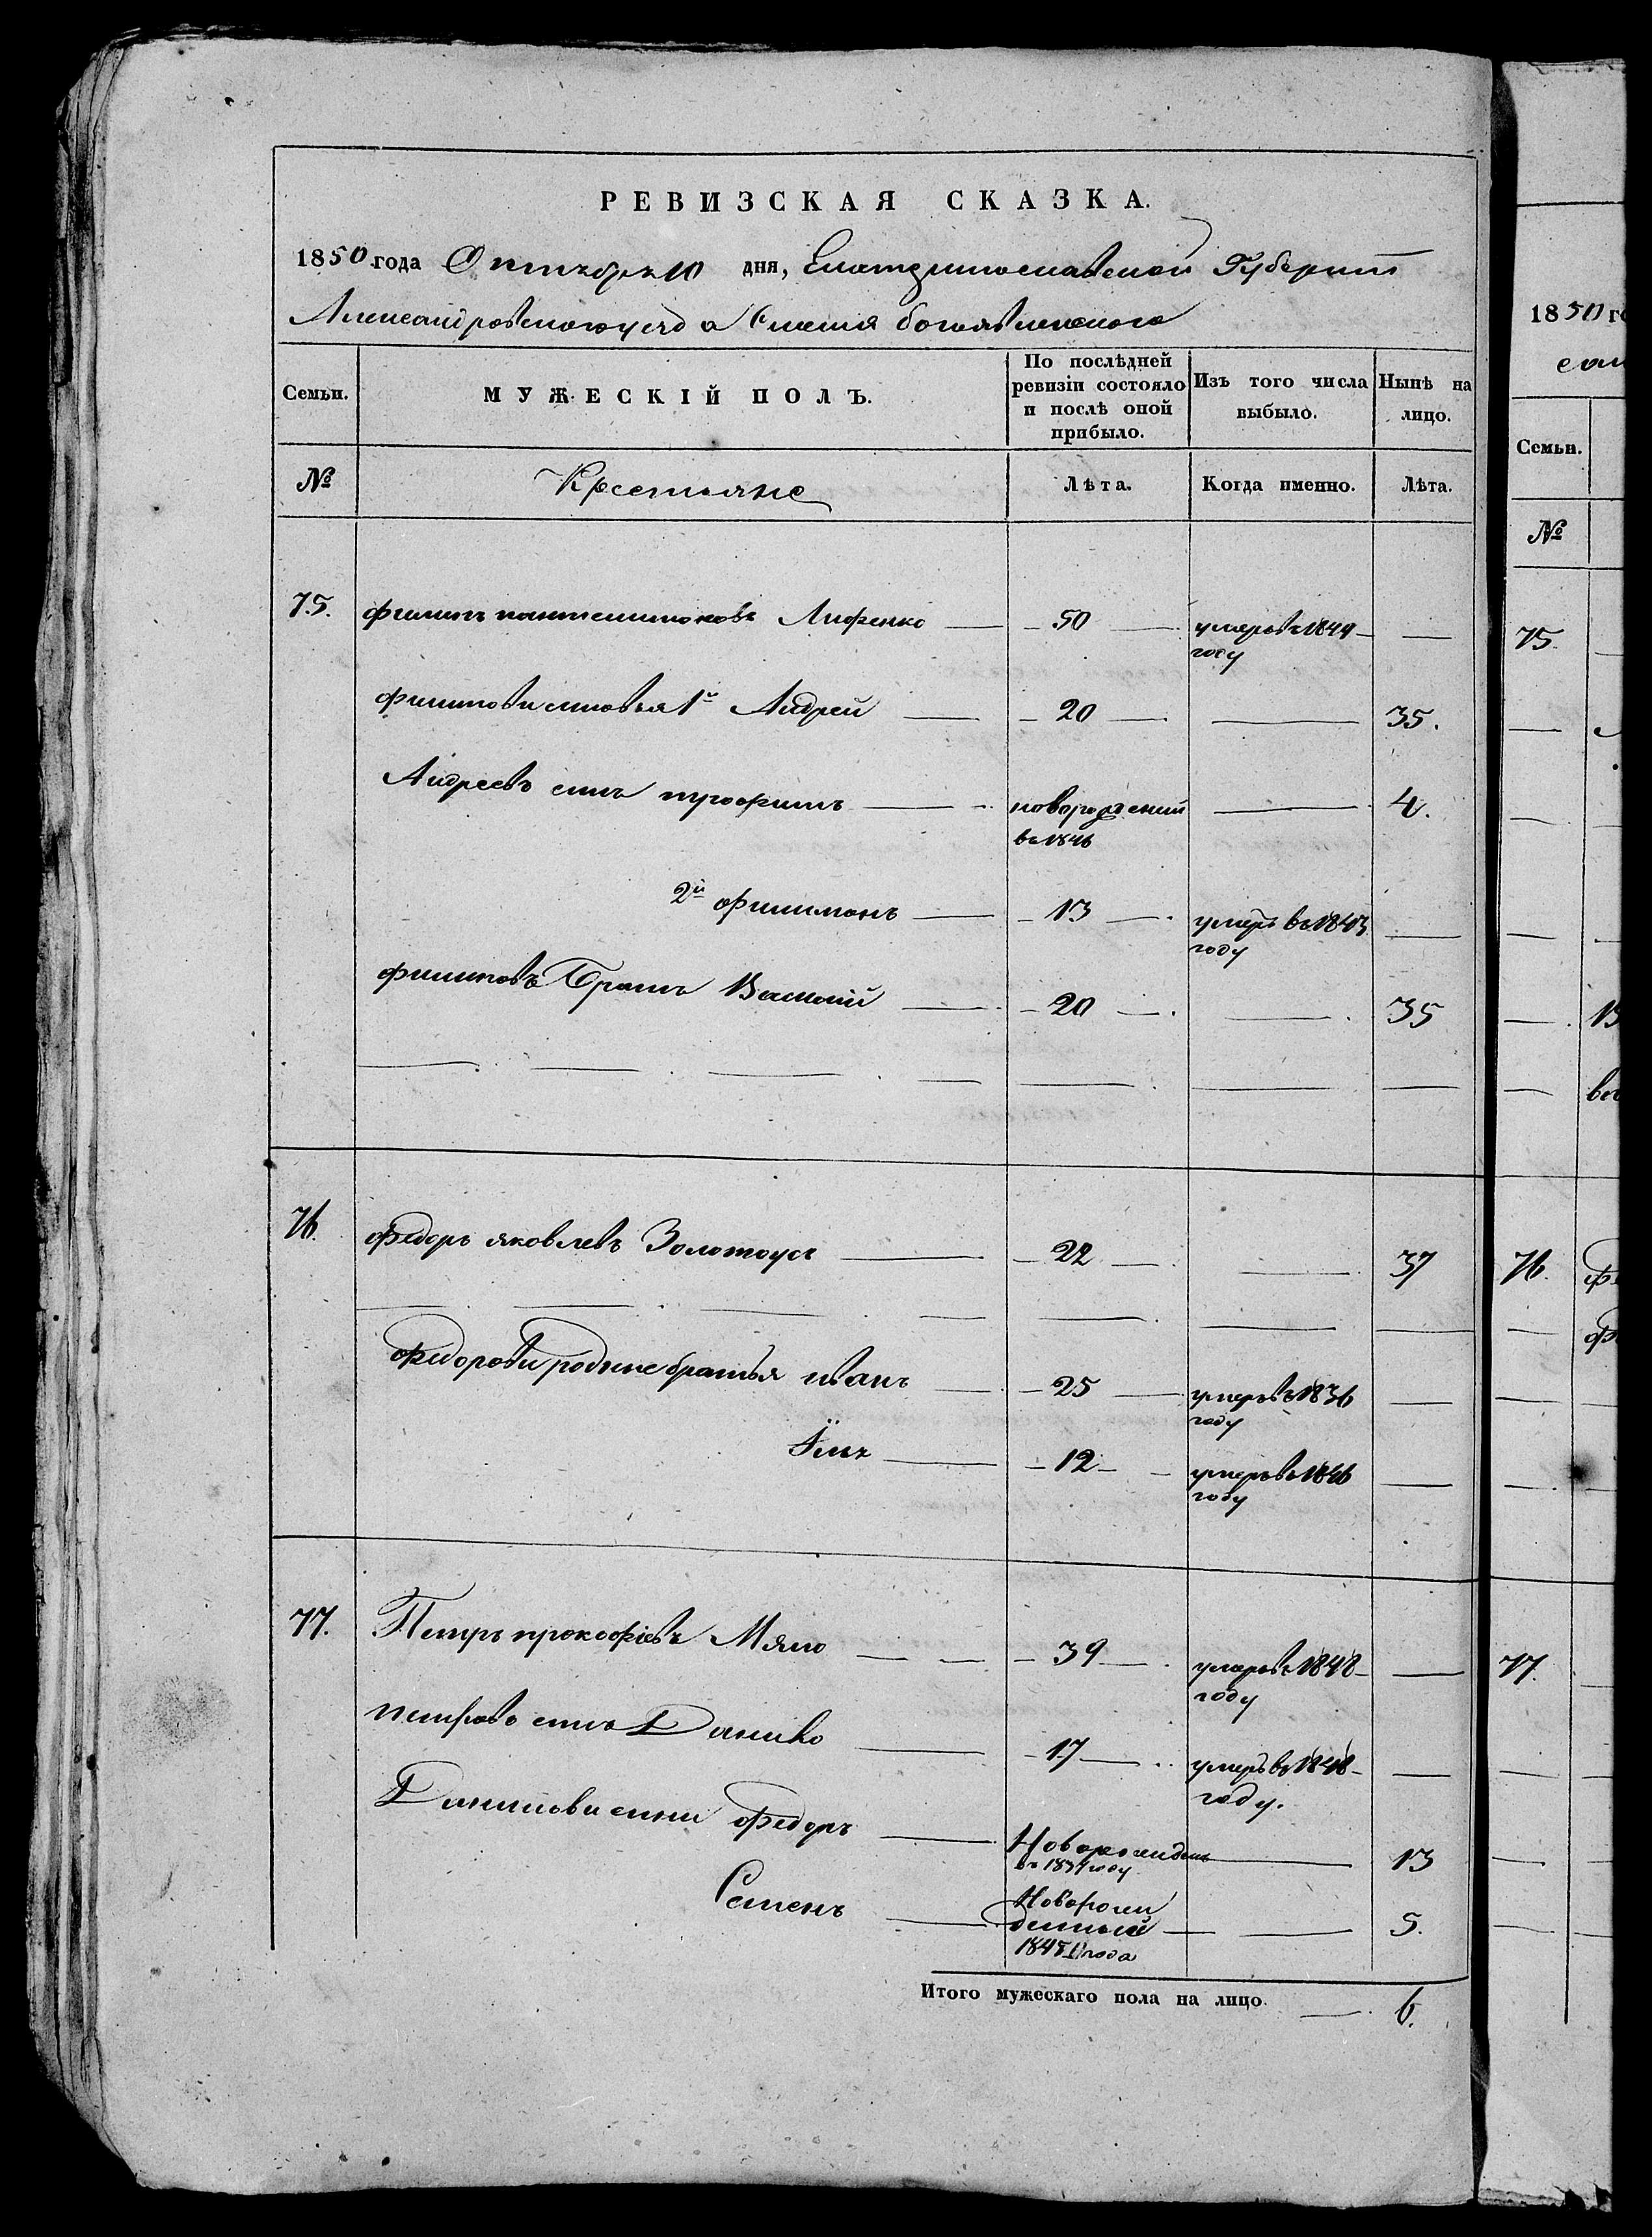 РЕВИЗСКАЯ СКАЗКА.
1850 года Октября 10 дня, Екатеринославской Губернии
Александровского уезда Селения богоявленского
Семьи. МУЖЕСКІЙ ПОЛЪ. По послѣдней ревизіи состояло и послѣ оной прибыло. Изъ того числа выбыло. Нынѣ на лицо.
№ Крестьяне Лѣта. Когда именно. Лѣта.
75. филипъ пантелимоновъ Лифенко 50 умеръ въ 1849 году
филиповы сыновья 1й Андрей 20 35.
Андреевъ сынъ трофимъ новорожденый въ 1846 4.
2й филимонъ 13 умеръ въ 1843 году
филиповъ Братъ Василий 20 35
76. федоръ яковлевъ Золотоусъ 22 37
федоровы родные братья иванъ 25 умеръ въ 1836 году
12 умеръ въ 1846 году
77. Петръ прокофіевъ Мяло 39 умеръ въ 1848 году
петровъ сынъ Данило 17 умеръ въ 1848 году.
Даниловы сыны федоръ Новорожден въ 1837 году 13
Семенъ Новорожденный года 5.
Итого мужескаго пола на лицо. 6.
1850 го
Семьи.
№
75.
76.
77.